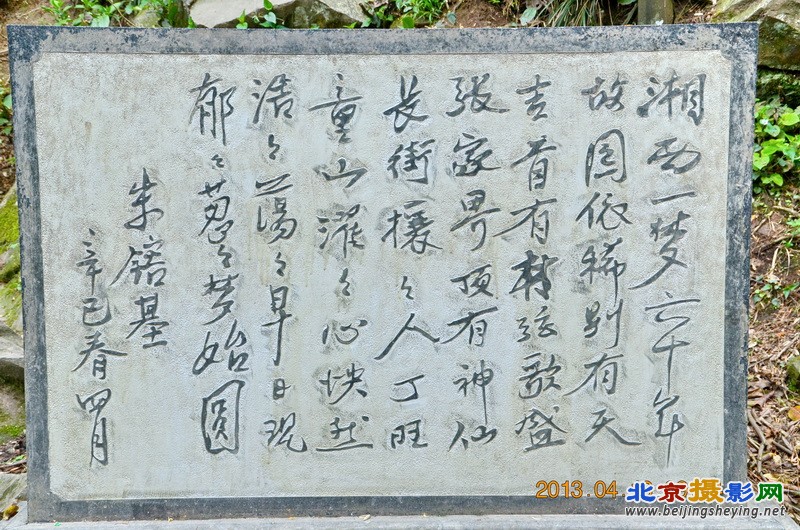 湘西一梦六十年
故园依稀别有天
吉首有材弦歌盛
张家界顶有神仙
长街攘々人丁旺
童山濯々心怏然
浩々荡々早日现
郁々葱々梦始圆
朱镕基
辛巳春四月
2013.04
北京摄影网
www.beijingsheying.net